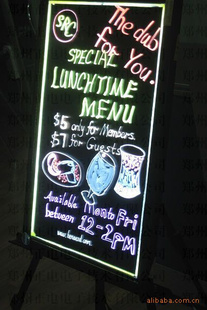 SRC
The club
for You.
SPECIAL
LUNCHTIME
MENU
$5 only for Members
$7 for Guests
Available Mon to Fri
between 12-2PM
alibaba.com.cn